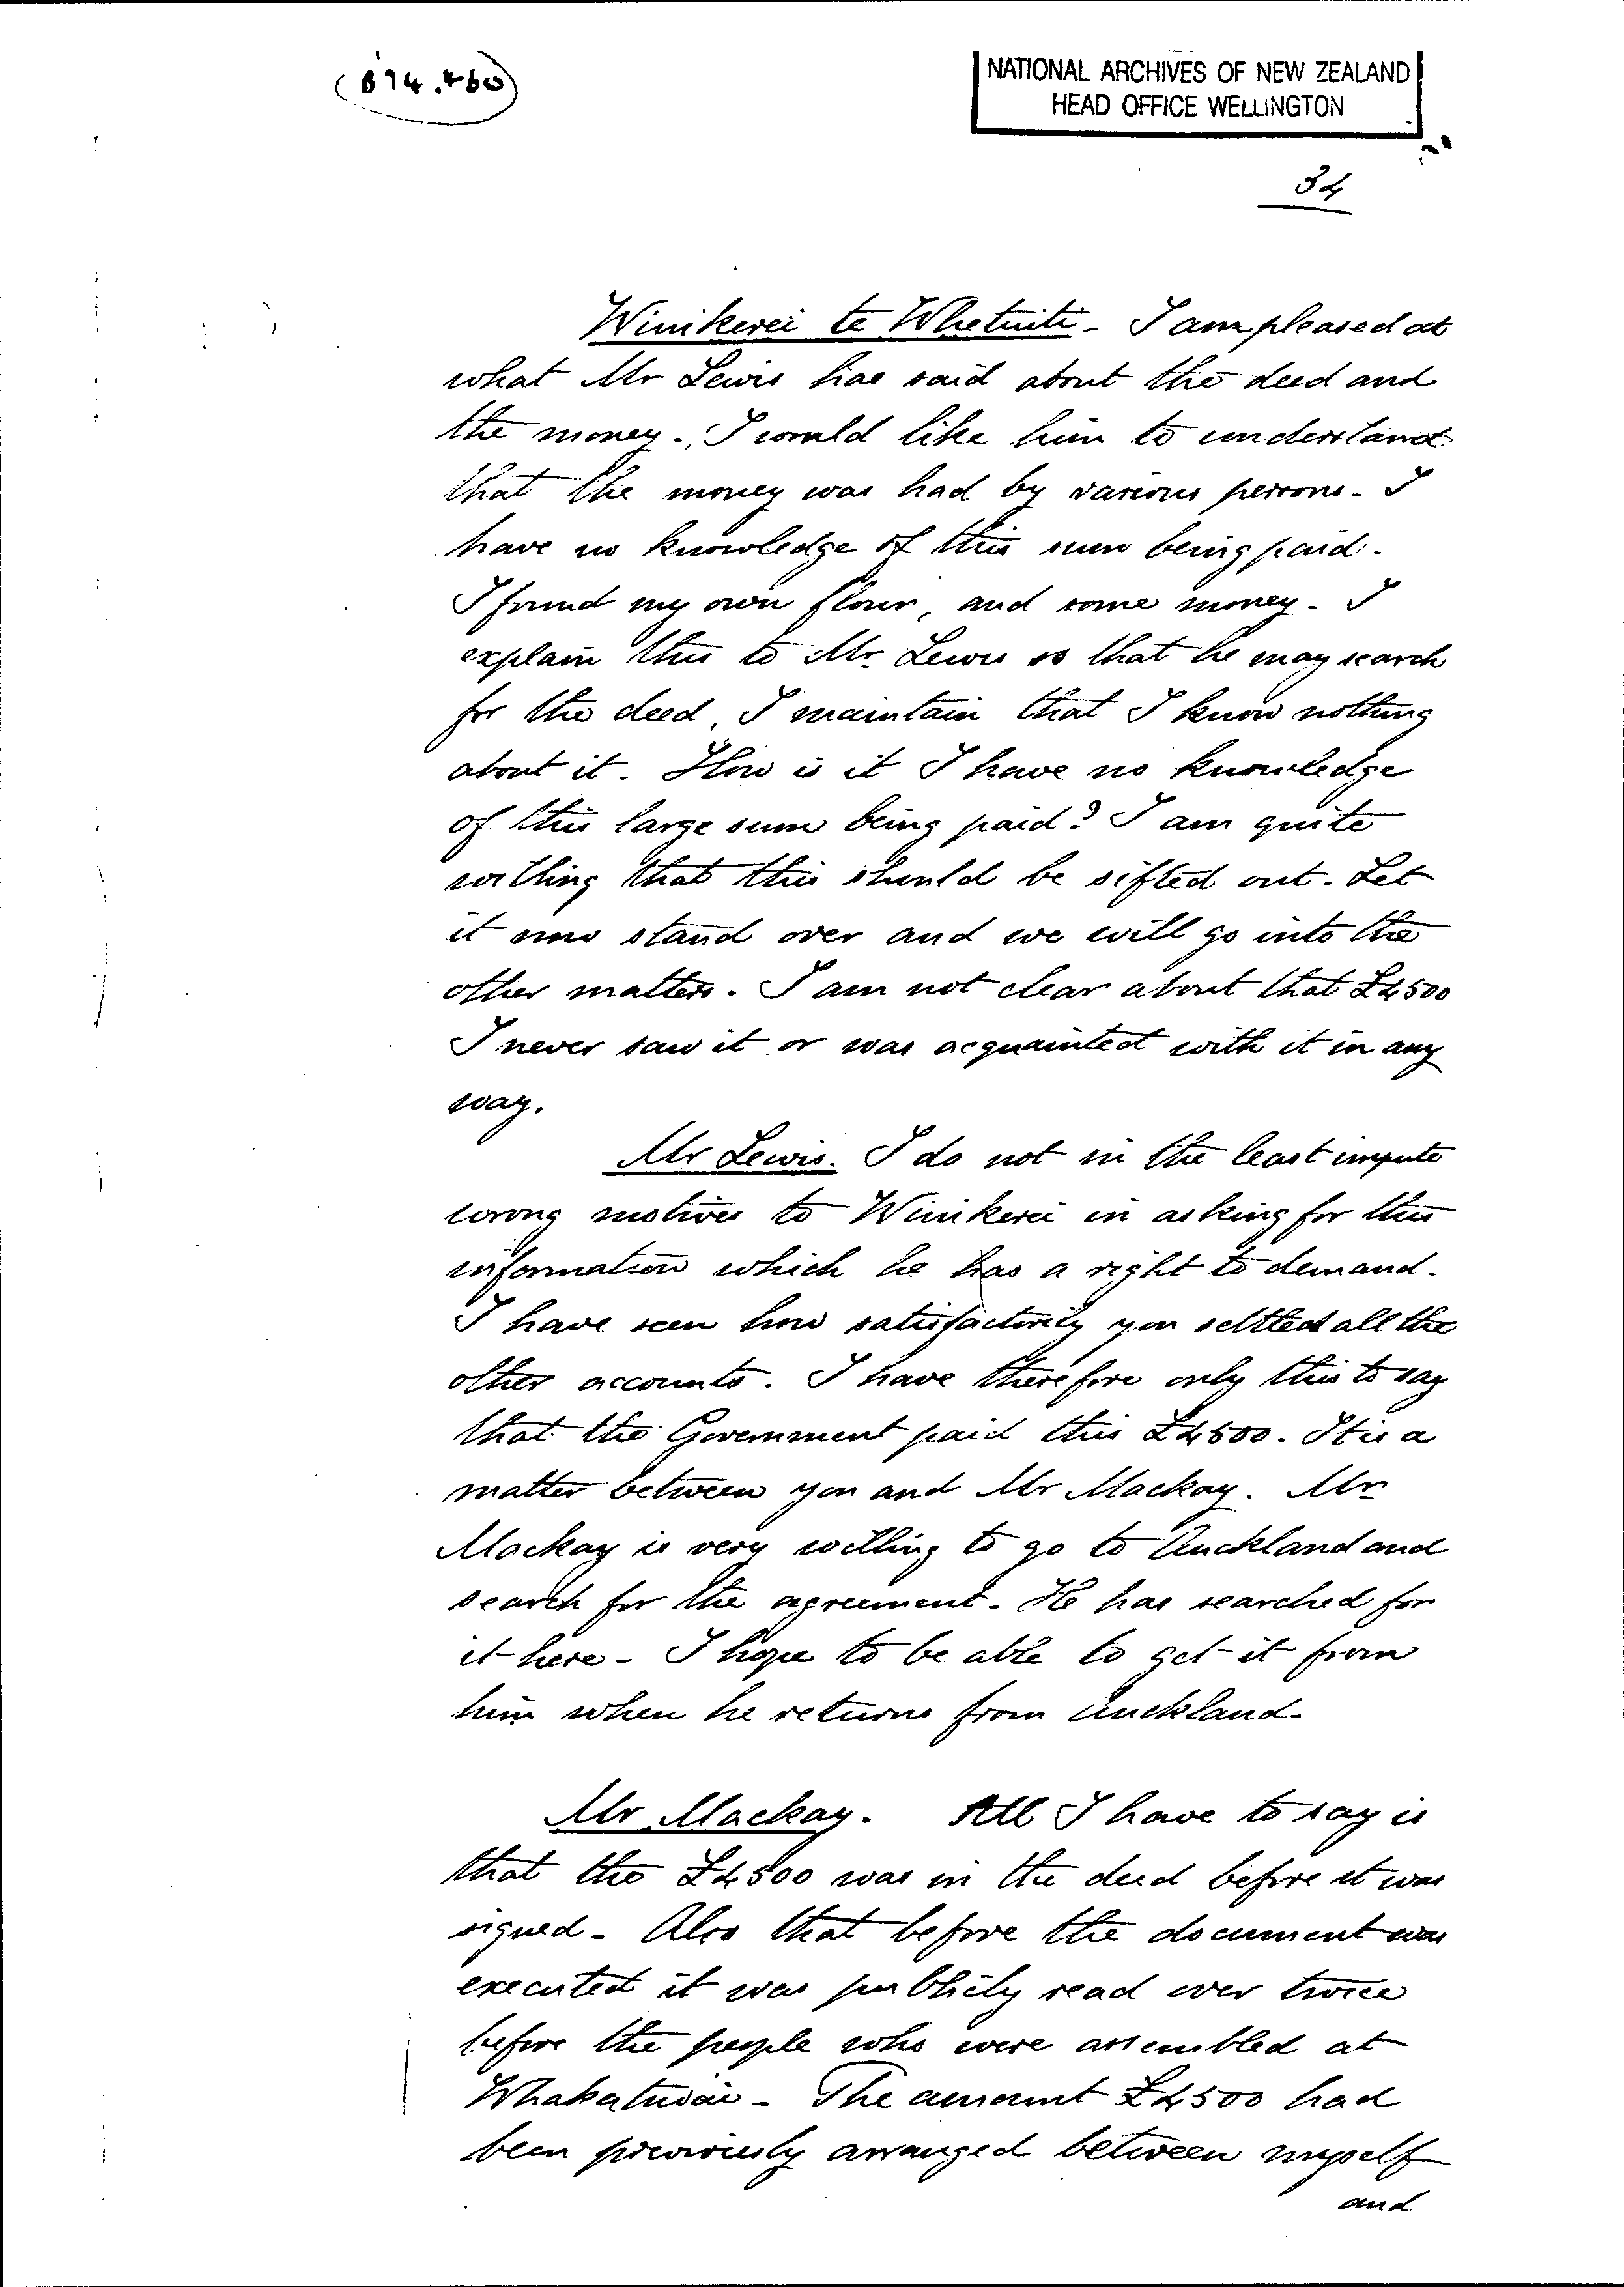 (B 94.460)
NATIONAL ARCHIVES OF NEW ZEALAND
HEAD OFFICE WELLINGTON
34
Winikerei te Whetuiti - I am pleased at
what Mr Lewis has said about the deed and
the money - I would like him to understand
that the money was had by various persons - I
have no knowledge of this sum being paid -
I found my own flour, and some money - I
explain this to Mr. Lewis so that he may search
for the deed, I maintain that I know nothing
about it. How is it I have no knowledge
of this large sum being paid? I am quite
willing that this should be sifted out - Let
it now stand over and we will go into the
other matters. I am not clear about that £4500
I never saw it or was acquainted with it in any
way.
Mr Lewis. I do not in the least impute
wrong motives to Winikerei in asking for this
information which he has a right to demand -
I have seen how satisfactorily you settled all the
other accounts. I have therefore only this to say
that the Government paid this £4500 - It is a
matter between you and Mr Mackay. Mr
Mackay is very willing to go to Auckland and
search for the agreement - He has searched for
it here - I hope to be able to get it from
him when he returns from Auckland -
Mr Mackay. All I have to say is
that the £4500 was in the deed before it was
signed - Also that before the document was
executed it was publicly read over twice
before the people who were assembled at
Whakatiwai - The amount £4500 had
been previously arranged between myself
and